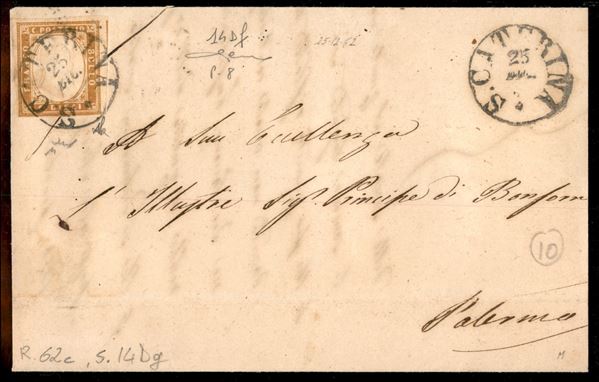 14Df
25.12.62
p. 8
S. CATERINA
25
DIC.
S. CATERINA
25
DIC.
A Sua Eccellenza
L'Illustre Sigr. Principe di
10
Palermo
R. 62c, S. 14Dg